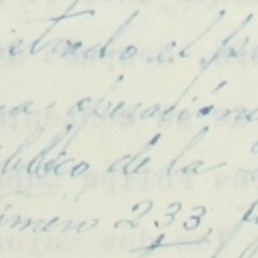 istrado el p
na operación
úblico de la
úmero 233, f